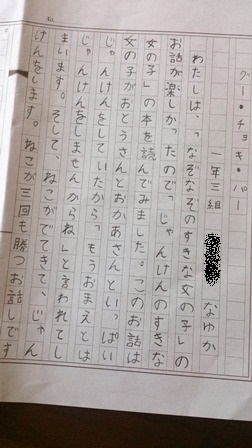 No.
グー・チョキ・パー
一年三組 なゆか
わたしは、「なぞなぞのすきな女の子」の
お話が楽しかったので、「じゃんけんのすきな
女の子」の本を読んでみました。このお話は
女の子がおとうさんとおかあさんといっぱい
じゃんけんをしていたから、「もうおまえとは
じゃんけんをしませんからね」と言われてし
まいます。そして、ねこがでてきて、じゃん
けんをします。ねこが三回も勝つお話です